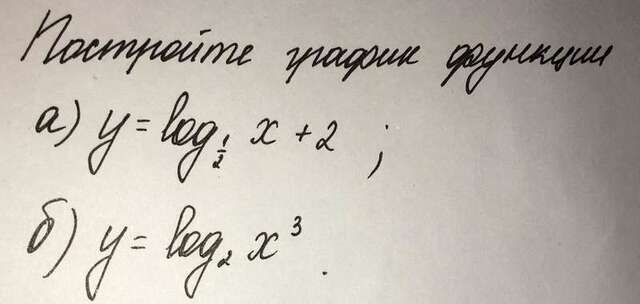 Постройте график функции
а) y = log_{1/2} x + 2 ;
б) y = log₂ x³ .